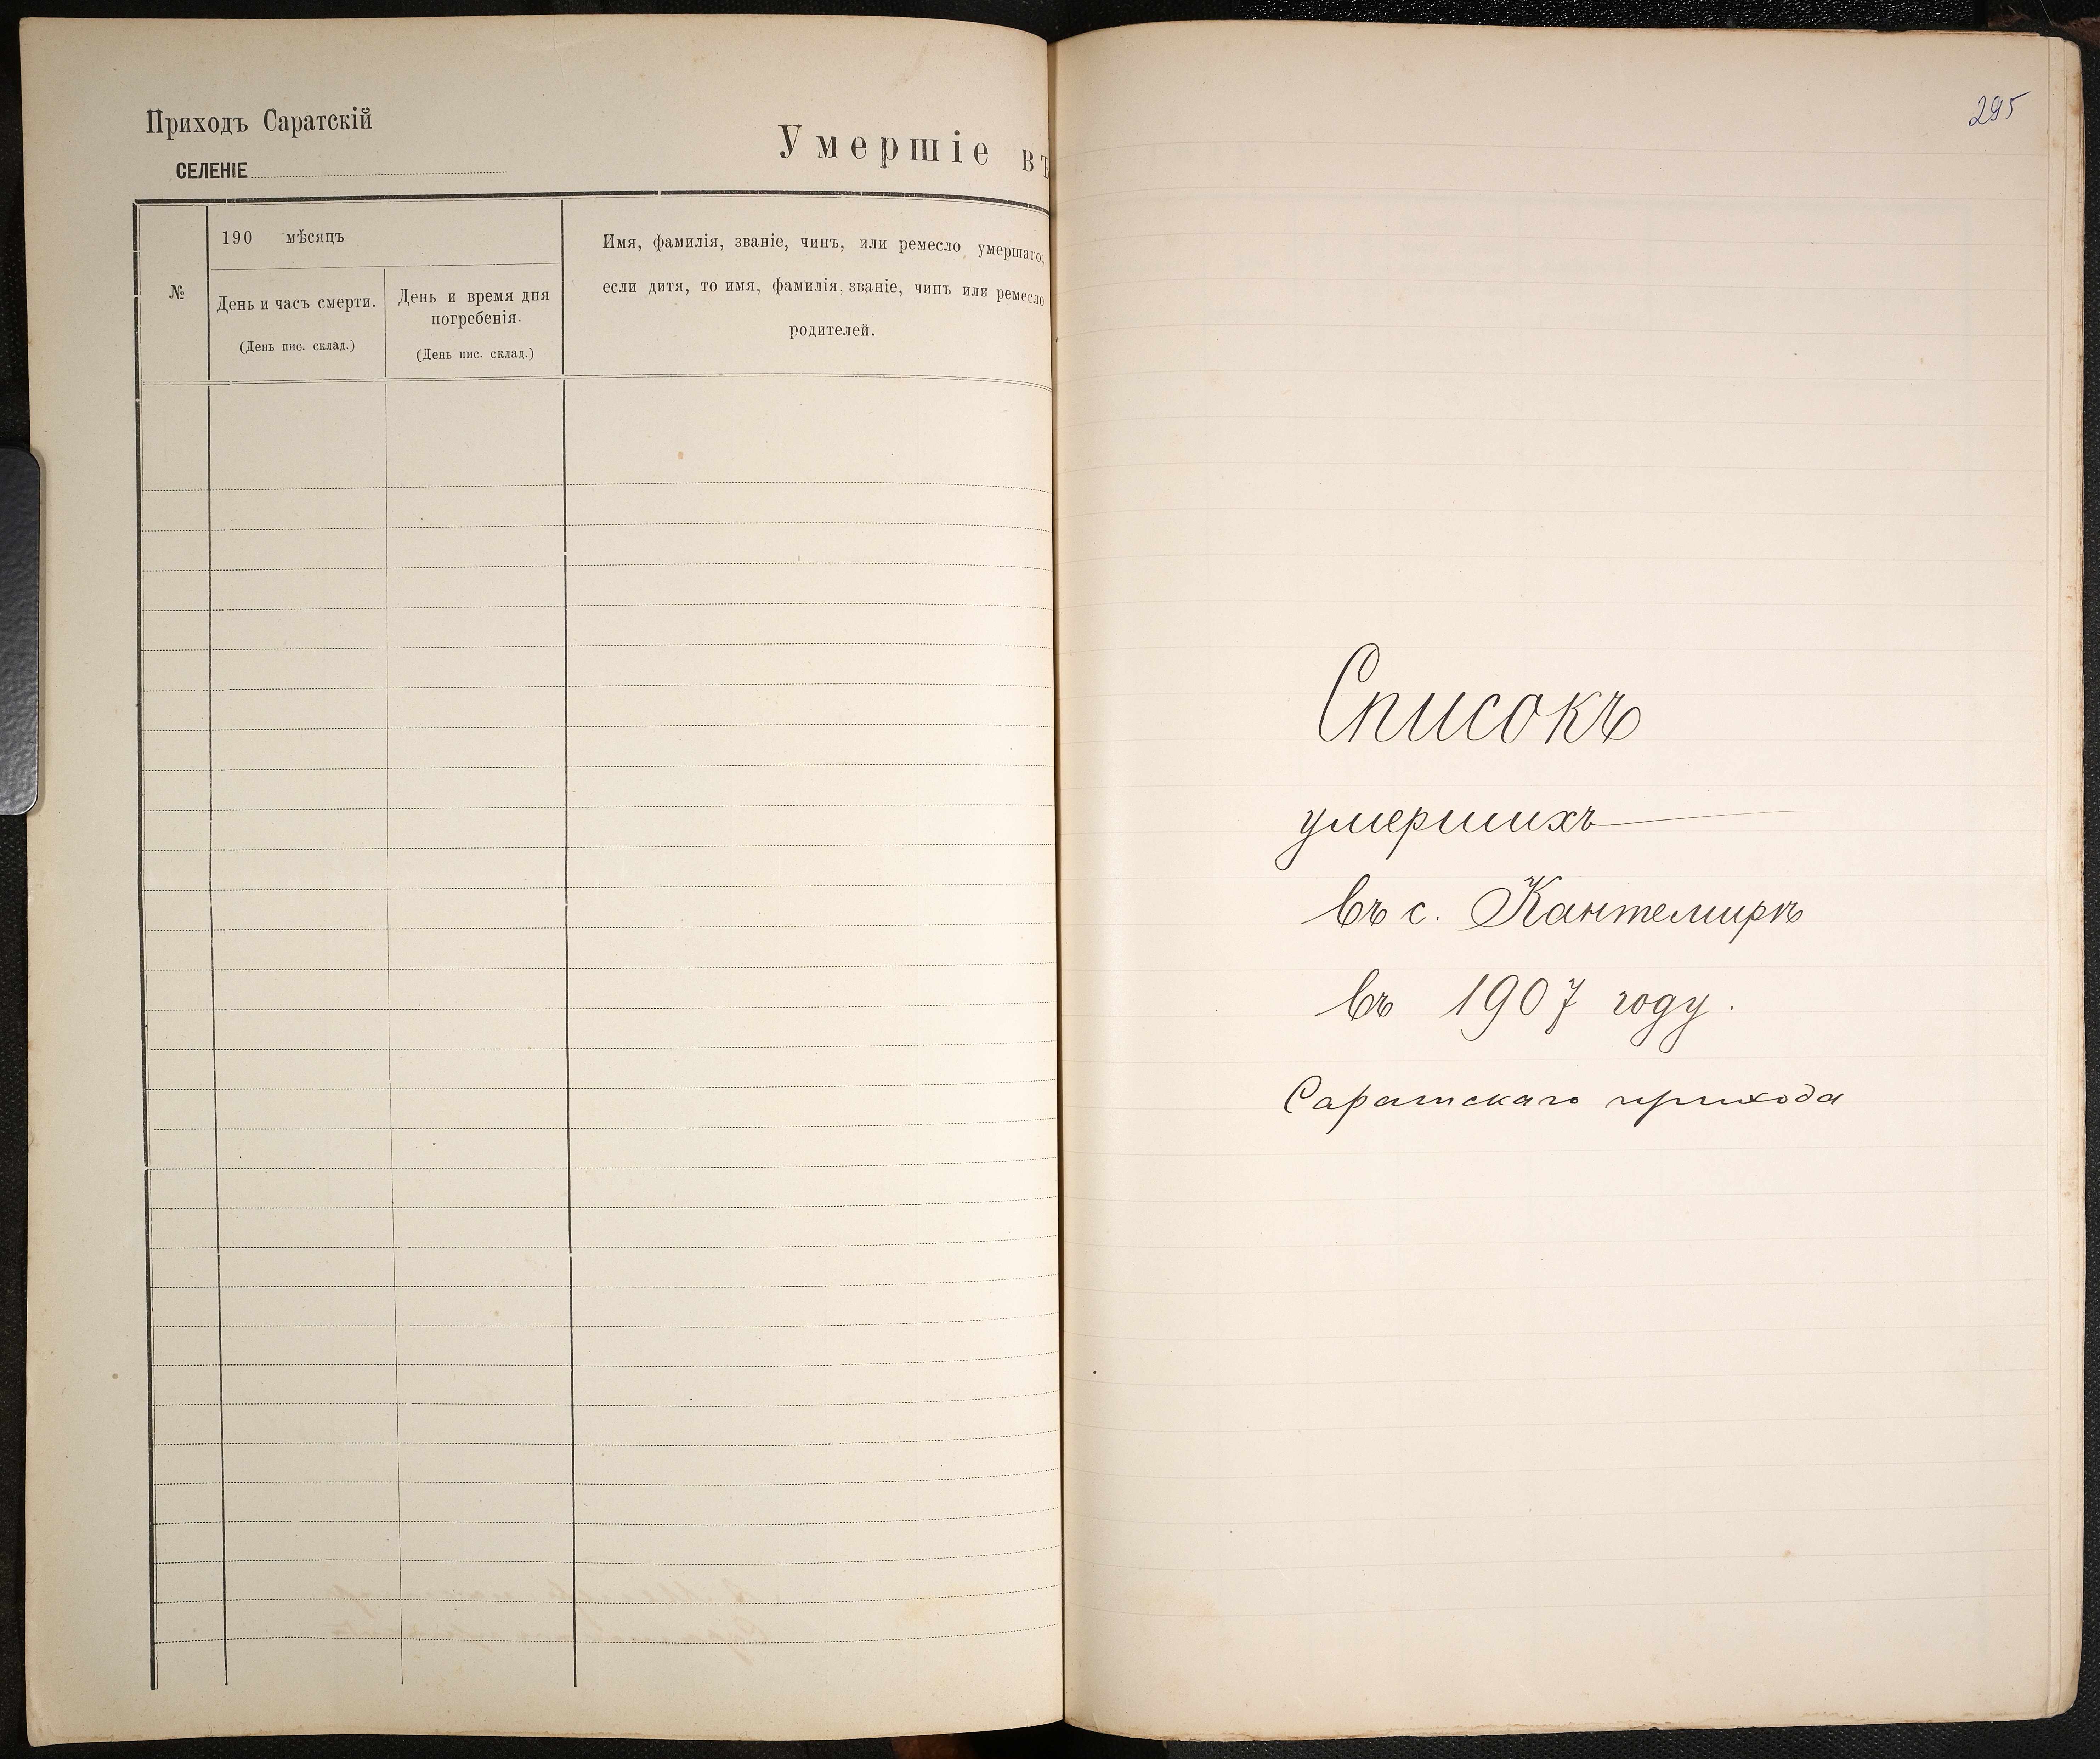 Приходъ Саратскій
СЕЛЕНІЕ
Умершіе въ
190 мѣсяцъ
№
День и часъ смерти.
(День пис. склад.)
День и время дня
погребенія.
(День пис. склад.)
Имя, фамилія, званіе, чинъ, или ремесло умершаго;
если дитя, то имя, фамилія, званіе, чинъ или ремесло
родителей.
295
Списокъ
умершихъ
въ с. Кантемиръ
въ 1907 году.
Саратскаго прихода